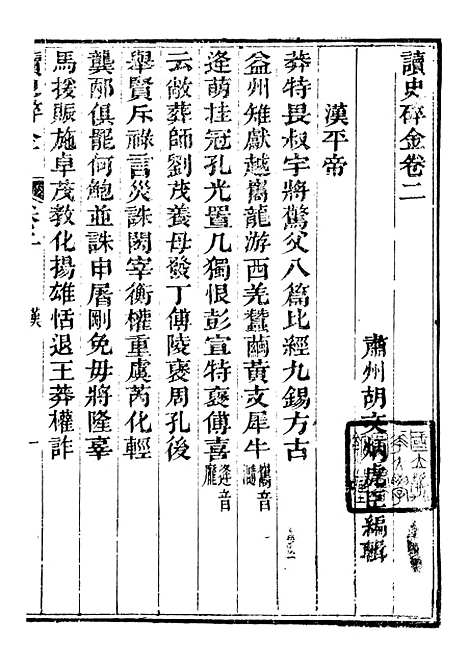 讀史碎金卷二
肅州胡文炳虎臣編輯
漢平帝
莽特畏叔宇將驚父八篇比經九錫方古
益州雉獻越巂龍游西羌蠶繭黃支犀牛
巂音
逢萌挂冠孔光置几獨恨彭宣特褒傅喜
逢音龐
云敞葬師劉茂養母發丁傅陵褒周孔後
舉賢斥祿言災誅閎宰衡權重虞芮化輕
龔邴俱罷何鮑並誅申屠剛免毋將隆辜
馬援賑施卓茂教化揚雄恬退王莽權詐
讀史碎金
卷二
漢
一